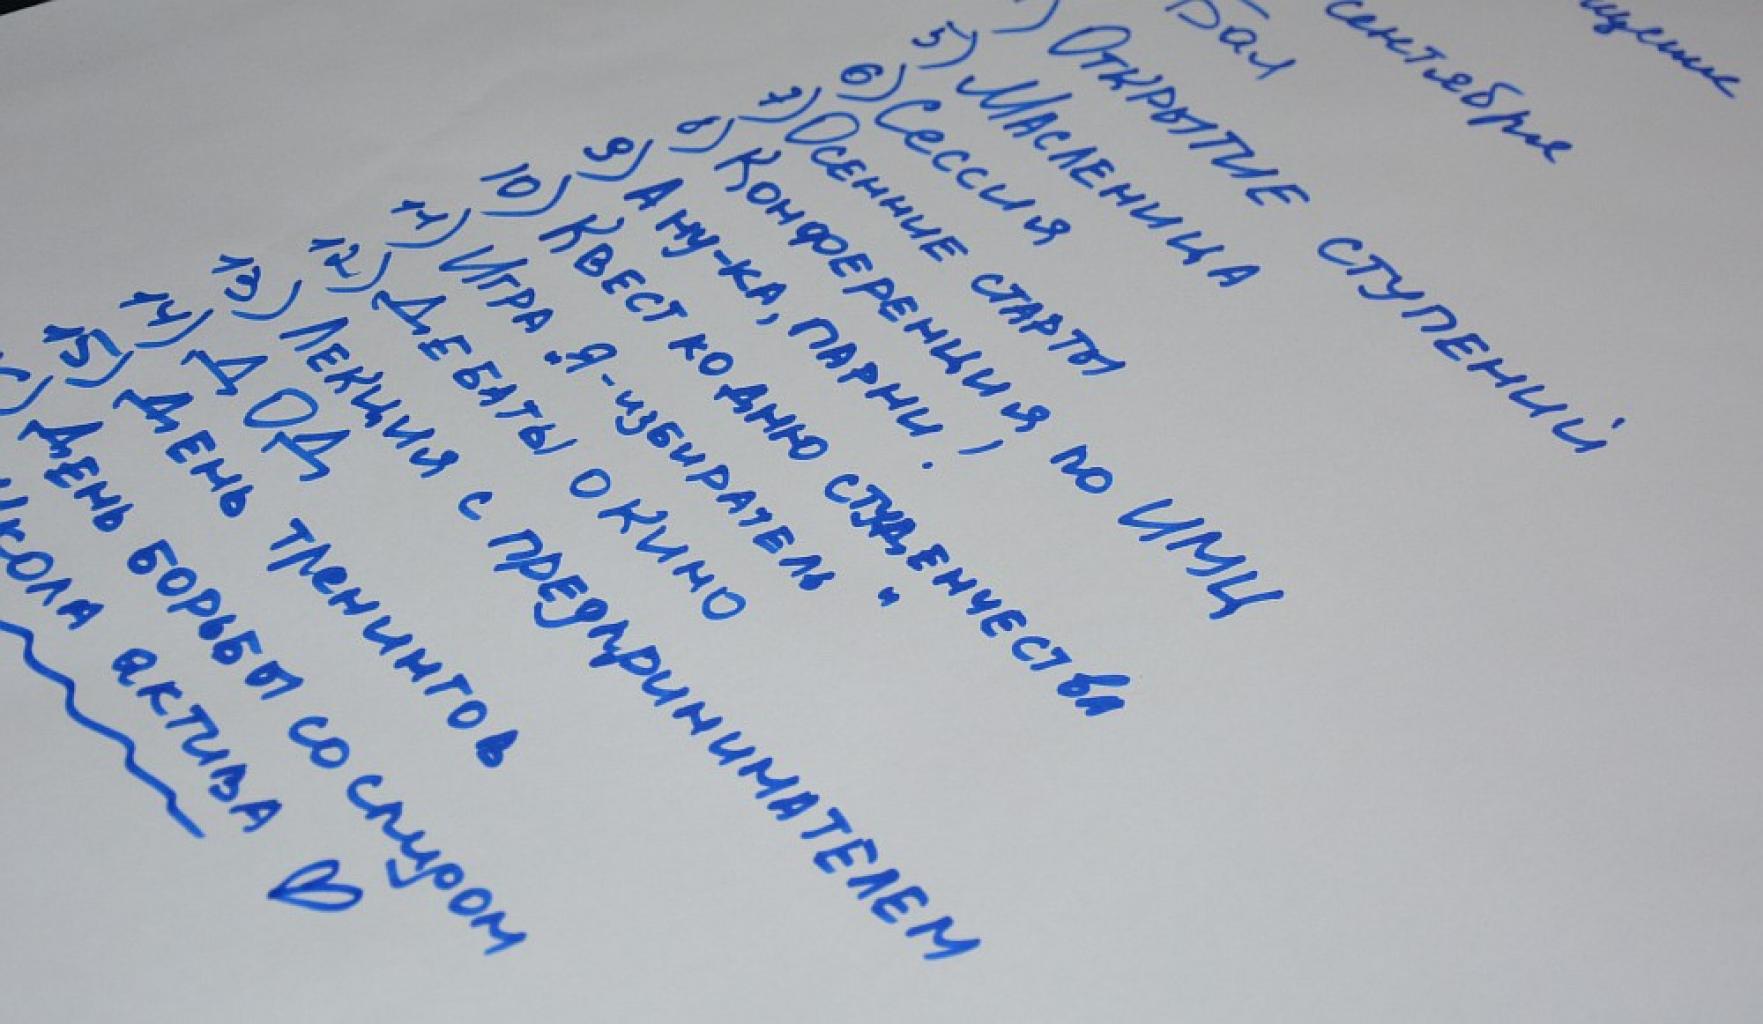 сентября
Бал
) Открытие ступений
5) Масленица
6) Сессия
7) Осенние старты
8) Конференция по ИМЦ
9) А ну-ка, парни!)
10) Квест ко дню студенчества
11) Игра "Я-избиратель"
12) Дебаты о кино
13) Лекция с предпринимателем
14) ДОД
15) День тренингов
) День борьбы со спидом
кола актива